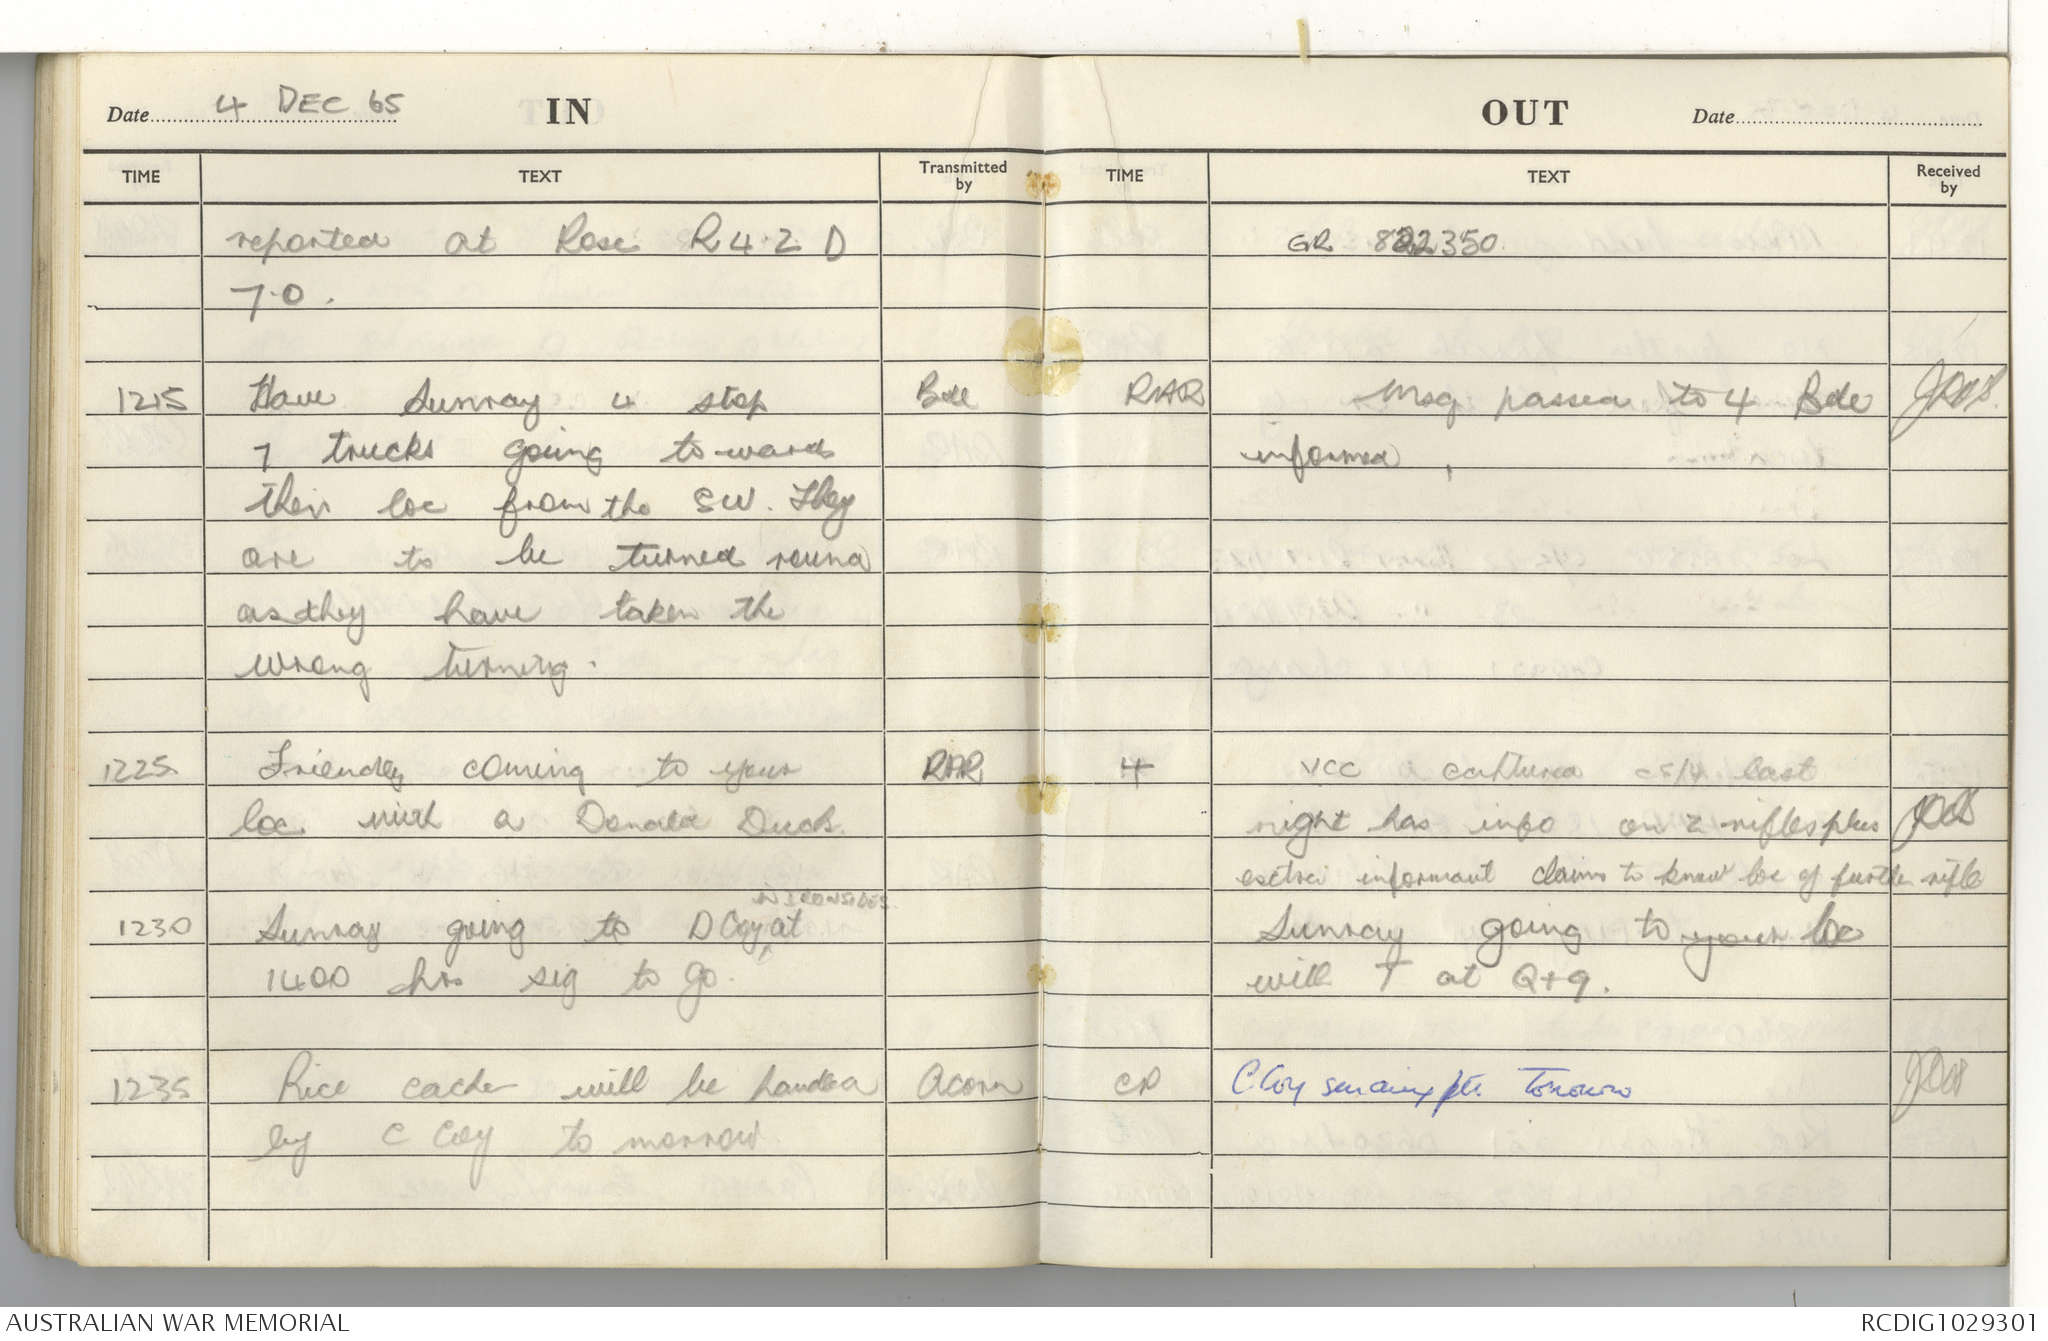 Date 4 DEC 65 IN
TIME TEXT Transmitted by
reported at Rose R 4.2 D
7.0.
1215 Have Sunray 4 stop Bde
7 trucks going towards
their loc from the SW. They
are to be turned round
as they have taken the
wrong turning.
1225 Friendly coming to your RAR
loc with a Donald Duck.
IN IRONSIDES
1230 Sunray going to D Coy at
1400 hrs sig to go.
1235 Rice cache will be handled Acorn
by C Coy tomorrow
OUT Date
TIME TEXT Received by
GR 822350.
RAR Msg passed to 4 Bde JDOS.
informed,
4 VCC captured CS/4 last
right has info on 2 rifles plus
extra informant claims to know loc of further rifle
Sunray going to your loc
will T at Q+9.
CP C Coy sending ptl. Tomorrow
AUSTRALIAN WAR MEMORIAL RCDIG1029301